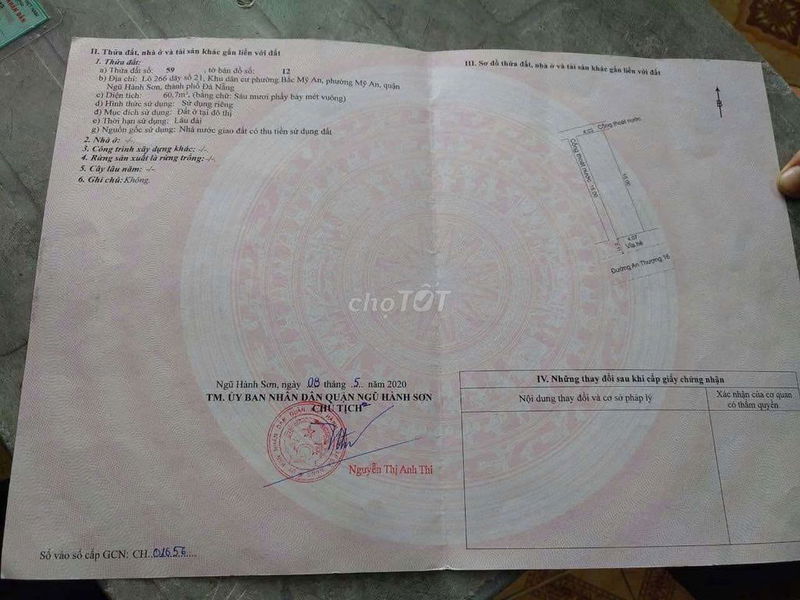 II. Thửa đất, nhà ở và tài sản khác gắn liền với đất
1. Thửa đất:
a) Thửa đất số: 59 , tờ bản đồ số: 12
b) Địa chỉ: Lô 266 dãy số 21, Khu dân cư phường Bắc Mỹ An, phường Mỹ An, quận
Ngũ Hành Sơn, thành phố Đà Nẵng
c) Diện tích: 60,7m², (bằng chữ: Sáu mươi phẩy bảy mét vuông)
d) Hình thức sử dụng: Sử dụng riêng
đ) Mục đích sử dụng: Đất ở tại đô thị
e) Thời hạn sử dụng: Lâu dài
g) Nguồn gốc sử dụng: Nhà nước giao đất có thu tiền sử dụng đất
2. Nhà ở: -/-
3. Công trình xây dựng khác: -/-
4. Rừng sản xuất là rừng trồng: -/-
5. Cây lâu năm: -/-
6. Ghi chú: Không.
Ngũ Hành Sơn, ngày 08 tháng 5 năm 2020
TM. ỦY BAN NHÂN DÂN QUẬN NGŨ HÀNH SƠN
CHỦ TỊCH
Nguyễn Thị Anh Thi
Số vào sổ cấp GCN: CH 01656
III. Sơ đồ thửa đất, nhà ở và tài sản khác gắn liền với đất
B
Cống thoát nước
4.03
Cống thoát nước
15.00
15.00
4.07
Vỉa hè
Đường An Thượng 16
chợTỐT
IV. Những thay đổi sau khi cấp giấy chứng nhận
Nội dung thay đổi và cơ sở pháp lý
Xác nhận của cơ quan
có thẩm quyền